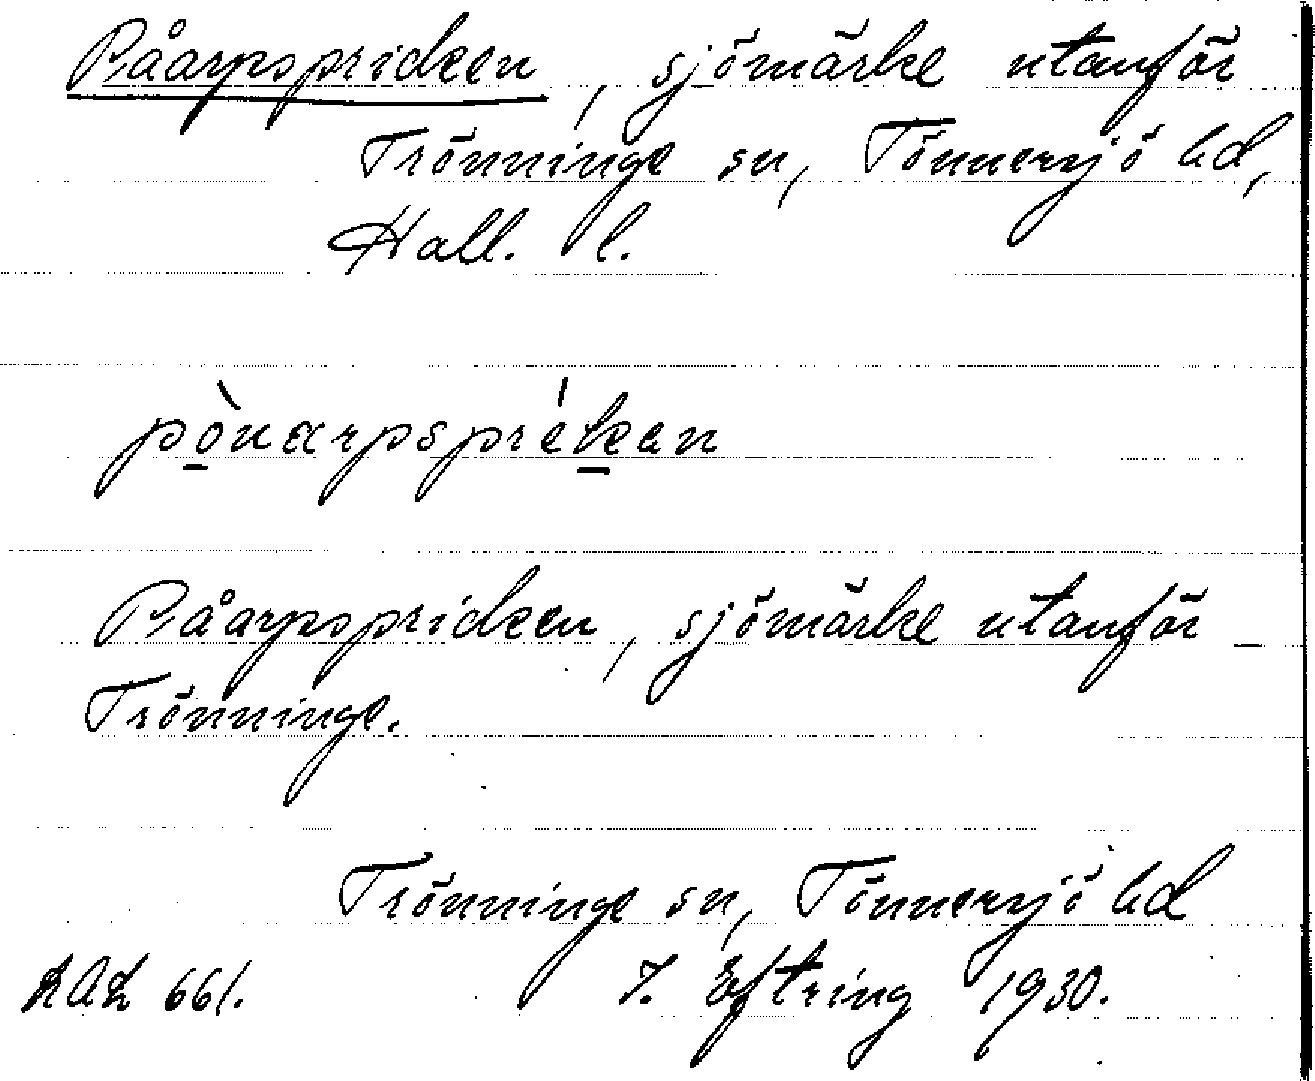 Påarpspricken, sjömärke utanför
Trönninge sn, Tönnersjö hd,
Hall. l.
pònarpspréken
Påarpspricken, sjömärke utanför
Trönninge.
Trönninge sn, Tönnersjö hd
661. J. Eftring 1930.